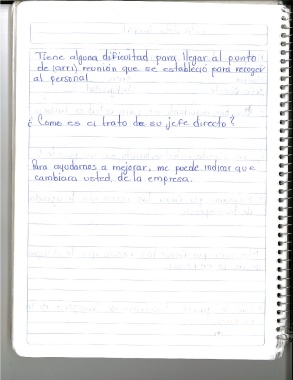 Tiene alguna dificultad para llegar al punto
de (arri) reunión que se estableció para recoger
al personal
¿ Como es el trato de su jefe directo?
Para ayudarnos a mejorar, me puede indicar que
cambiara usted de la empresa.